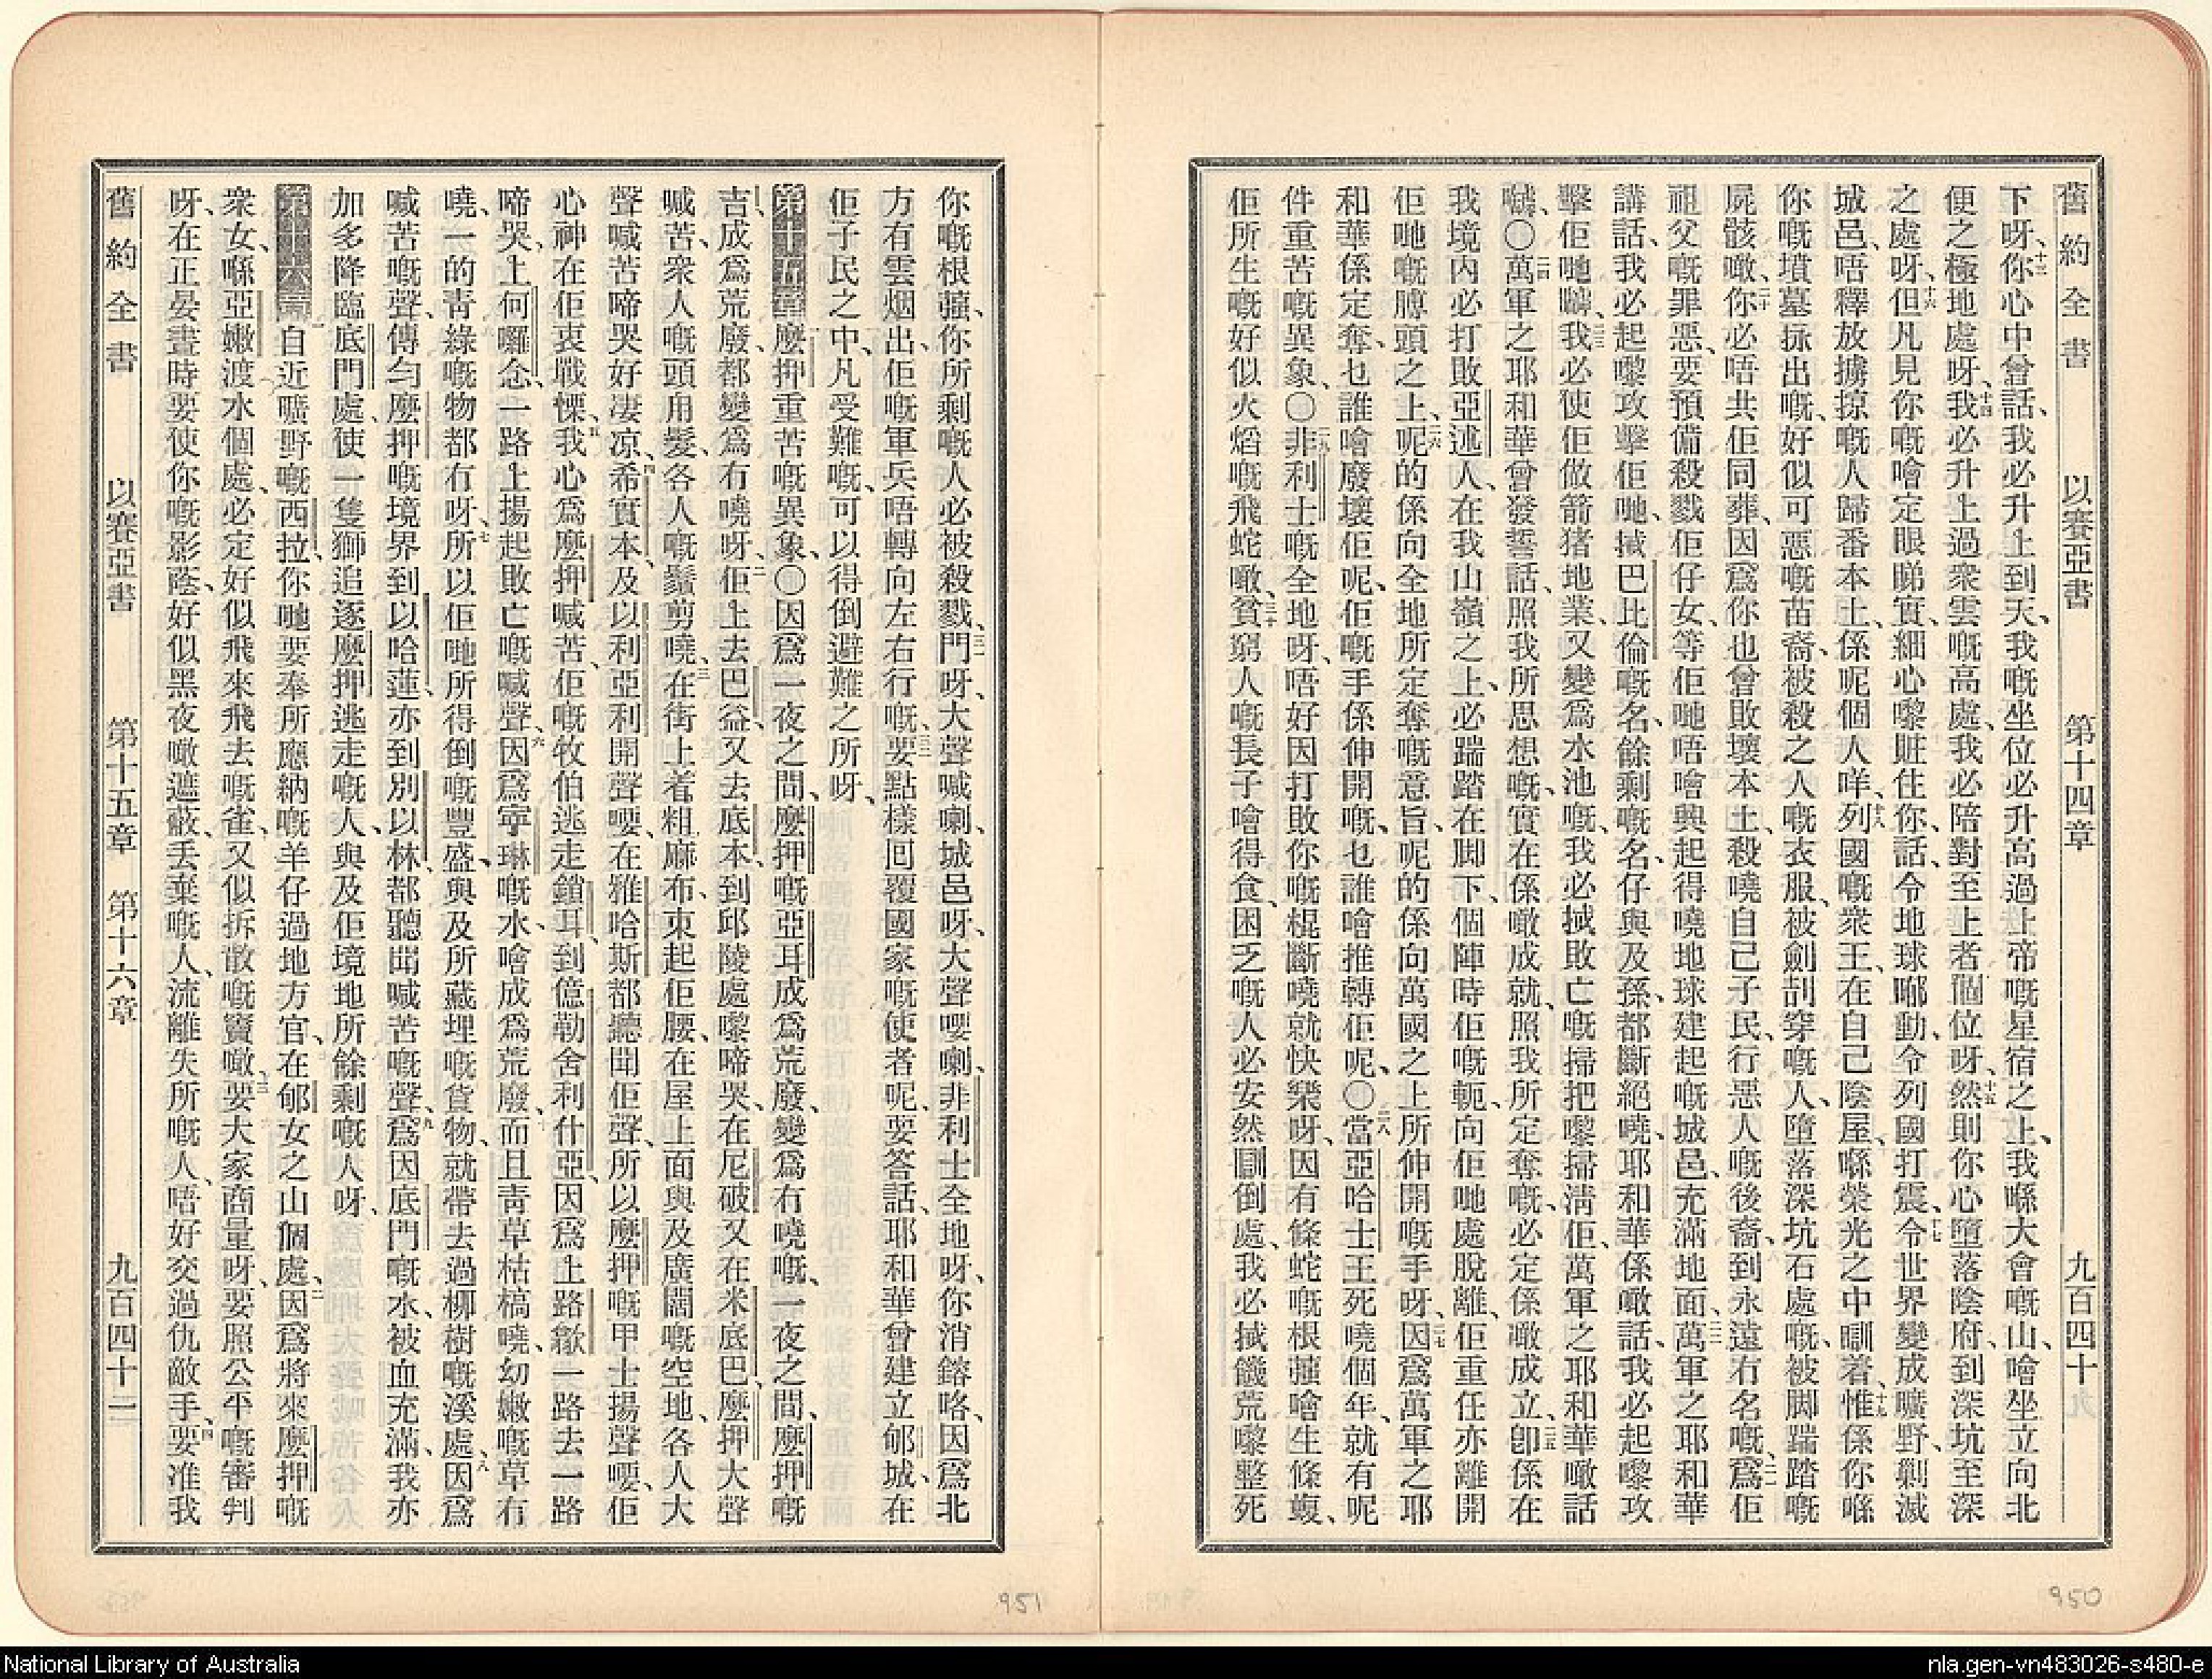 舊約全書 以賽亞書 第十四章 九百四十
下呀、十三你心中曾話、我必升上到天、我嘅坐位必升高過上帝嘅星宿之上、我喺大會嘅山、噲坐立向北
便之極地處呀、十四我必升上過衆雲嘅高處、我必陪對至上者個位呀、十五然則你心墮落陰府、到深坑至深
之處呀、十六但凡見你嘅噲定眼睇實、細心嚟賍住你、話、令地球郁動、令列國打震、十七令世界變成曠野、剿滅
城邑、唔釋放擄掠嘅人歸番本土、係呢個人咩、十八列國嘅衆王、在自己陰屋、喺榮光之中瞓着、十九惟係你喺
你嘅墳墓㧒出嘅、好似可惡嘅苗裔、被殺之人嘅衣服、被劍刮穿嘅人、墮落深坑石處嘅、被脚踹踏嘅
屍骸噉、二十你必唔共佢同葬、因爲你也曾敗壞本土、殺嘵自己子民、行惡人嘅後裔、到永遠冇名嘅、二一爲佢
祖父嘅罪惡、要預備殺戮佢仔女、等佢哋唔噲興起得嘵地球建起嘅城邑、充滿地面、二二萬軍之耶和華
講話、我必起嚟攻擊佢哋、搣巴比倫嘅名、餘剩嘅名、仔與及孫、都斷絕嘵、耶和華係噉話、我必起嚟攻
擊佢哋嚹、二三我必使佢做箭猪地業、又變爲水池嘅、我必搣敗亡嘅掃把嚟掃淸佢、萬軍之耶和華噉話
嚹、〇二四萬軍之耶和華曾發誓話、照我所思想嘅、實在係噉成就、照我所定奪嘅、必定係噉成立、二五卽係在
我境内必打敗亞述人、在我山嶺之上、必踹踏在脚下、個陣時佢嘅軛、向佢哋處脫離、佢重任亦離開
佢哋嘅膊頭之上、二六呢的係向全地所定奪嘅意旨、呢的係向萬國之上所伸開嘅手呀、二七因爲萬軍之耶
和華係定奪、乜誰噲廢壞佢呢、佢嘅手係伸開嘅、乜誰噲推轉佢呢、〇二八當亞哈士王死嘵個年、就有呢
件重苦嘅異象、〇二九非利士嘅全地呀、唔好因打敗你嘅棍斷嘵就快樂呀、因有條蛇嘅根薳噲生條蝮、
佢所生嘅好似火熖嘅飛蛇噉、三十貧窮人嘅長子噲得食、困乏嘅人必安然瞓倒處、我必搣饑荒嚟整死
你嘅根薳、你所剩嘅人必被殺戮、三一門呀、大聲喊喇、城邑呀、大聲嘐喇、非利士全地呀、你消鎔咯、因爲北
方有雲烟出、佢嘅軍兵唔轉向左右行嘅、三二要點樣囘覆國家嘅使者呢、要答話、耶和華曾建立郇城、在
佢子民之中、凡受難嘅、可以得倒避難之所呀、
第十五章 麼押重苦嘅異象、〇因爲一夜之間、麼押嘅亞耳成爲荒廢、變爲冇嘵嘅、一夜之間、麼押嘅
吉、成爲荒廢、都變爲冇嘵呀、二佢上去巴益、又去底本、到邱陵處嚟啼哭、在尼破又在米底巴、麼押大聲
喊苦、衆人嘅頭甪髮、各人嘅鬚剪嘵、三在街上着粗蔴布、束起佢腰、在屋上面與及廣闊嘅空地、各人大
聲喊苦啼哭好凄凉、四希實本、及以利亞利開聲嘐、在雅哈斯都聽聞佢聲、所以麼押嘅甲士揚聲嘐、佢
心神在佢衷戰慄、五我心爲麼押喊苦、佢嘅牧伯逃走鎖耳、到億勒舍利什亞、因爲上路歇一路去一路
啼哭、上何囉念、一路上揚起敗亡嘅喊聲、六因爲寕琳嘅水、噲成爲荒廢、而且靑草枯槁嘵、幼嫩嘅草冇
嘵、一的靑綠嘅物都冇呀、七所以佢哋所得倒嘅豐盛、與及所藏埋嘅貨物、就帶去過柳樹嘅溪處、八因爲
喊苦嘅聲、傳勻麼押嘅境界、到以哈蓮、亦到別以林、都聽聞喊苦嘅聲、九爲因底門嘅水、被血充滿、我亦
加多降臨底門處、使一隻獅追逐麼押逃走嘅人、與及佢境地所餘剩嘅人呀、
第十六章 一自近曠野嘅西拉、你哋要奉所應納嘅羊仔過地方官、在郇女之山個處、二因爲將來麼押嘅
衆女、喺亞嫩渡水個處、必定好似飛來飛去嘅雀、又似拆散嘅竇噉、三要大家商量呀、要照公平嘅審判
呀、在正晏晝時、要使你嘅影蔭、好似黑夜噉遮蔽、丟棄嘅人、流離失所嘅人、唔好交過仇敵手、四要准我
舊約全書 以賽亞書 第十五章 第十六章 九百四十一
951
950
National Library of Australia
nla.gen-vn483026-s480-e